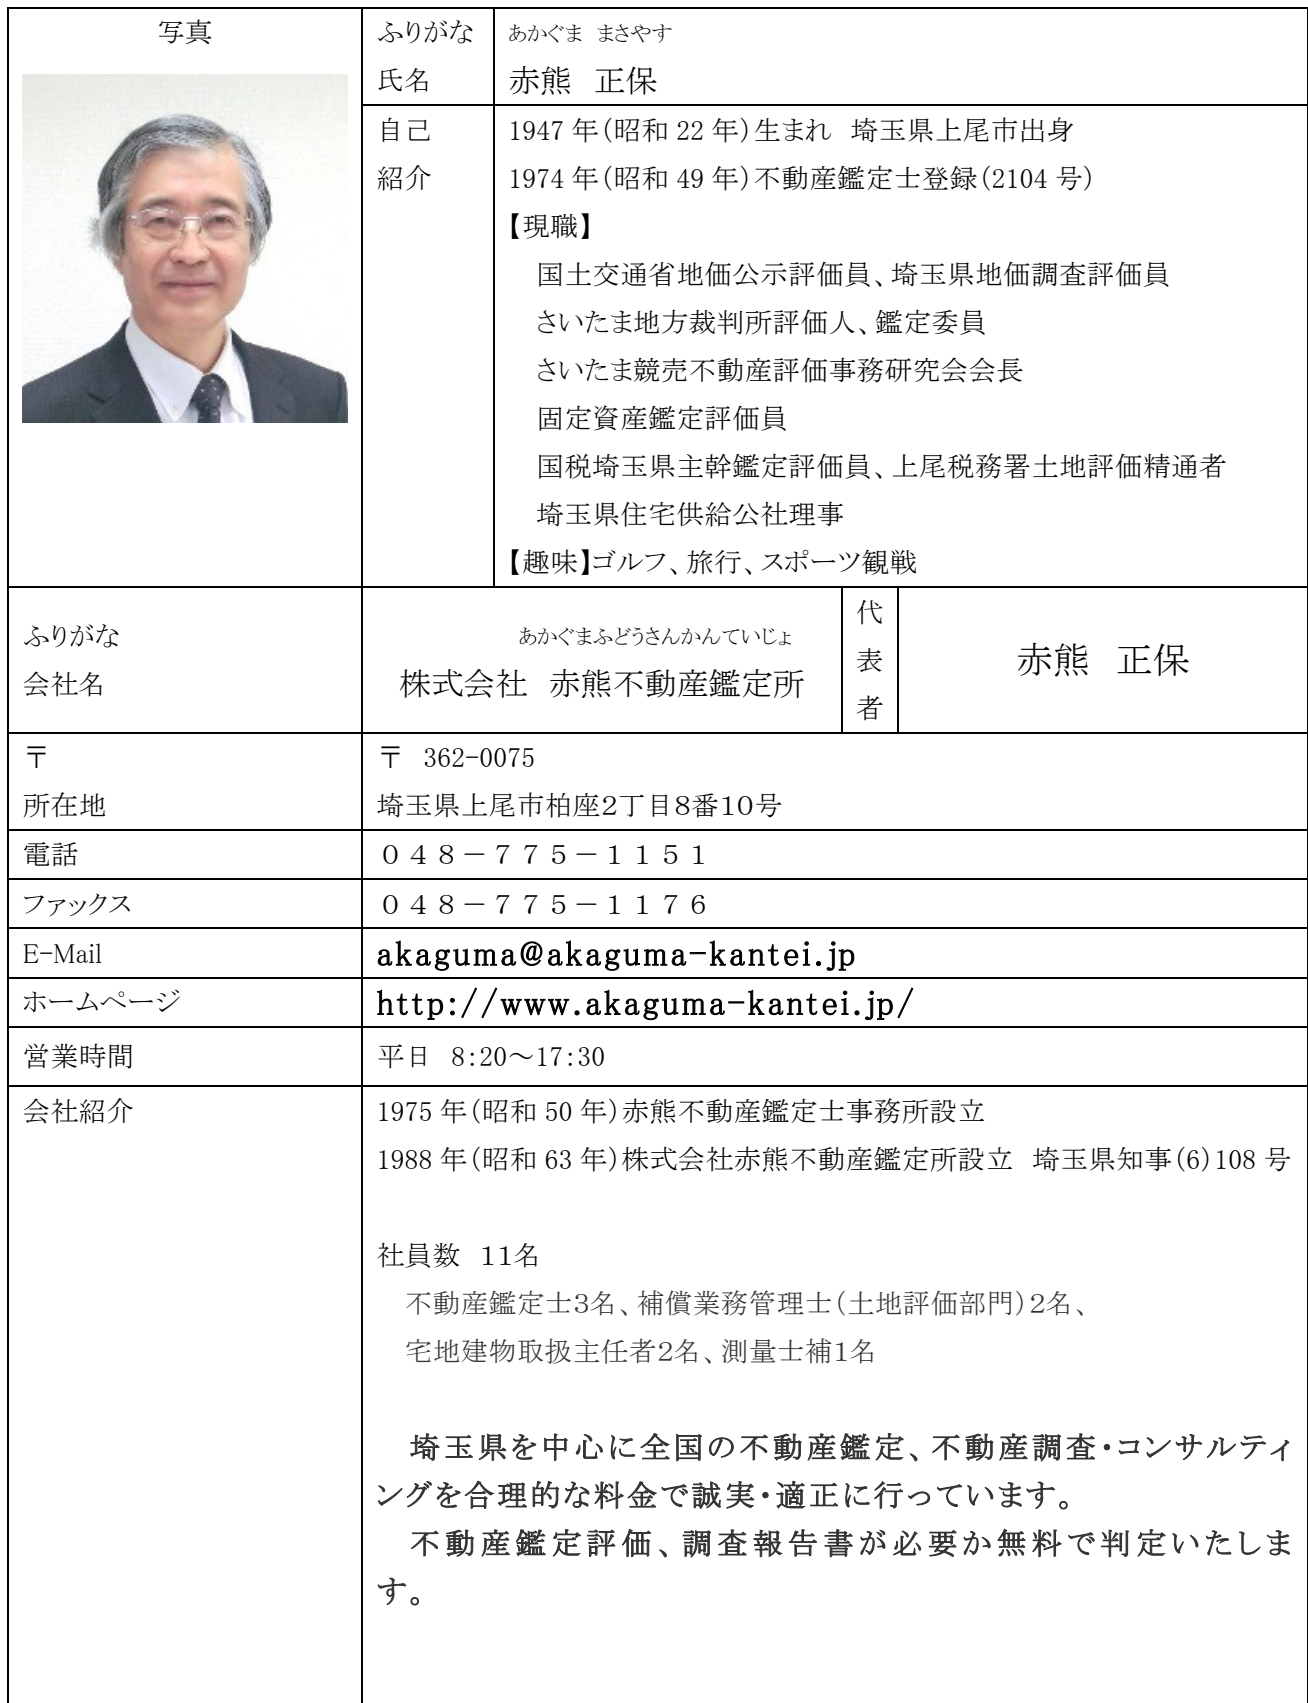 写真
ふりがな
あかぐま まさやす
氏名
赤熊 正保
自己
紹介
1947 年(昭和 22 年)生まれ 埼玉県上尾市出身
1974 年(昭和 49 年)不動産鑑定士登録(2104 号)
【現職】
国土交通省地価公示評価員、埼玉県地価調査評価員
さいたま地方裁判所評価人、鑑定委員
さいたま競売不動産評価事務研究会会長
固定資産鑑定評価員
国税埼玉県主幹鑑定評価員、上尾税務署土地評価精通者
埼玉県住宅供給公社理事
【趣味】ゴルフ、旅行、スポーツ観戦
ふりがな
会社名
あかぐまふどうさんかんていじょ
株式会社 赤熊不動産鑑定所
代
表
者
赤熊 正保
〒
所在地
〒 362-0075
埼玉県上尾市柏座2丁目8番10号
電話
048-775-1151
ファックス
048-775-1176
E-Mail
akaguma@akaguma-kantei.jp
ホームページ
http://www.akaguma-kantei.jp/
営業時間
平日 8:20~17:30
会社紹介
1975 年(昭和 50 年)赤熊不動産鑑定士事務所設立
1988 年(昭和 63 年)株式会社赤熊不動産鑑定所設立 埼玉県知事(6)108 号
社員数 11名
不動産鑑定士3名、補償業務管理士(土地評価部門)2名、
宅地建物取扱主任者2名、測量士補1名
埼玉県を中心に全国の不動産鑑定、不動産調査・コンサルティ
ングを合理的な料金で誠実・適正に行っています。
不動産鑑定評価、調査報告書が必要か無料で判定いたしま
す。